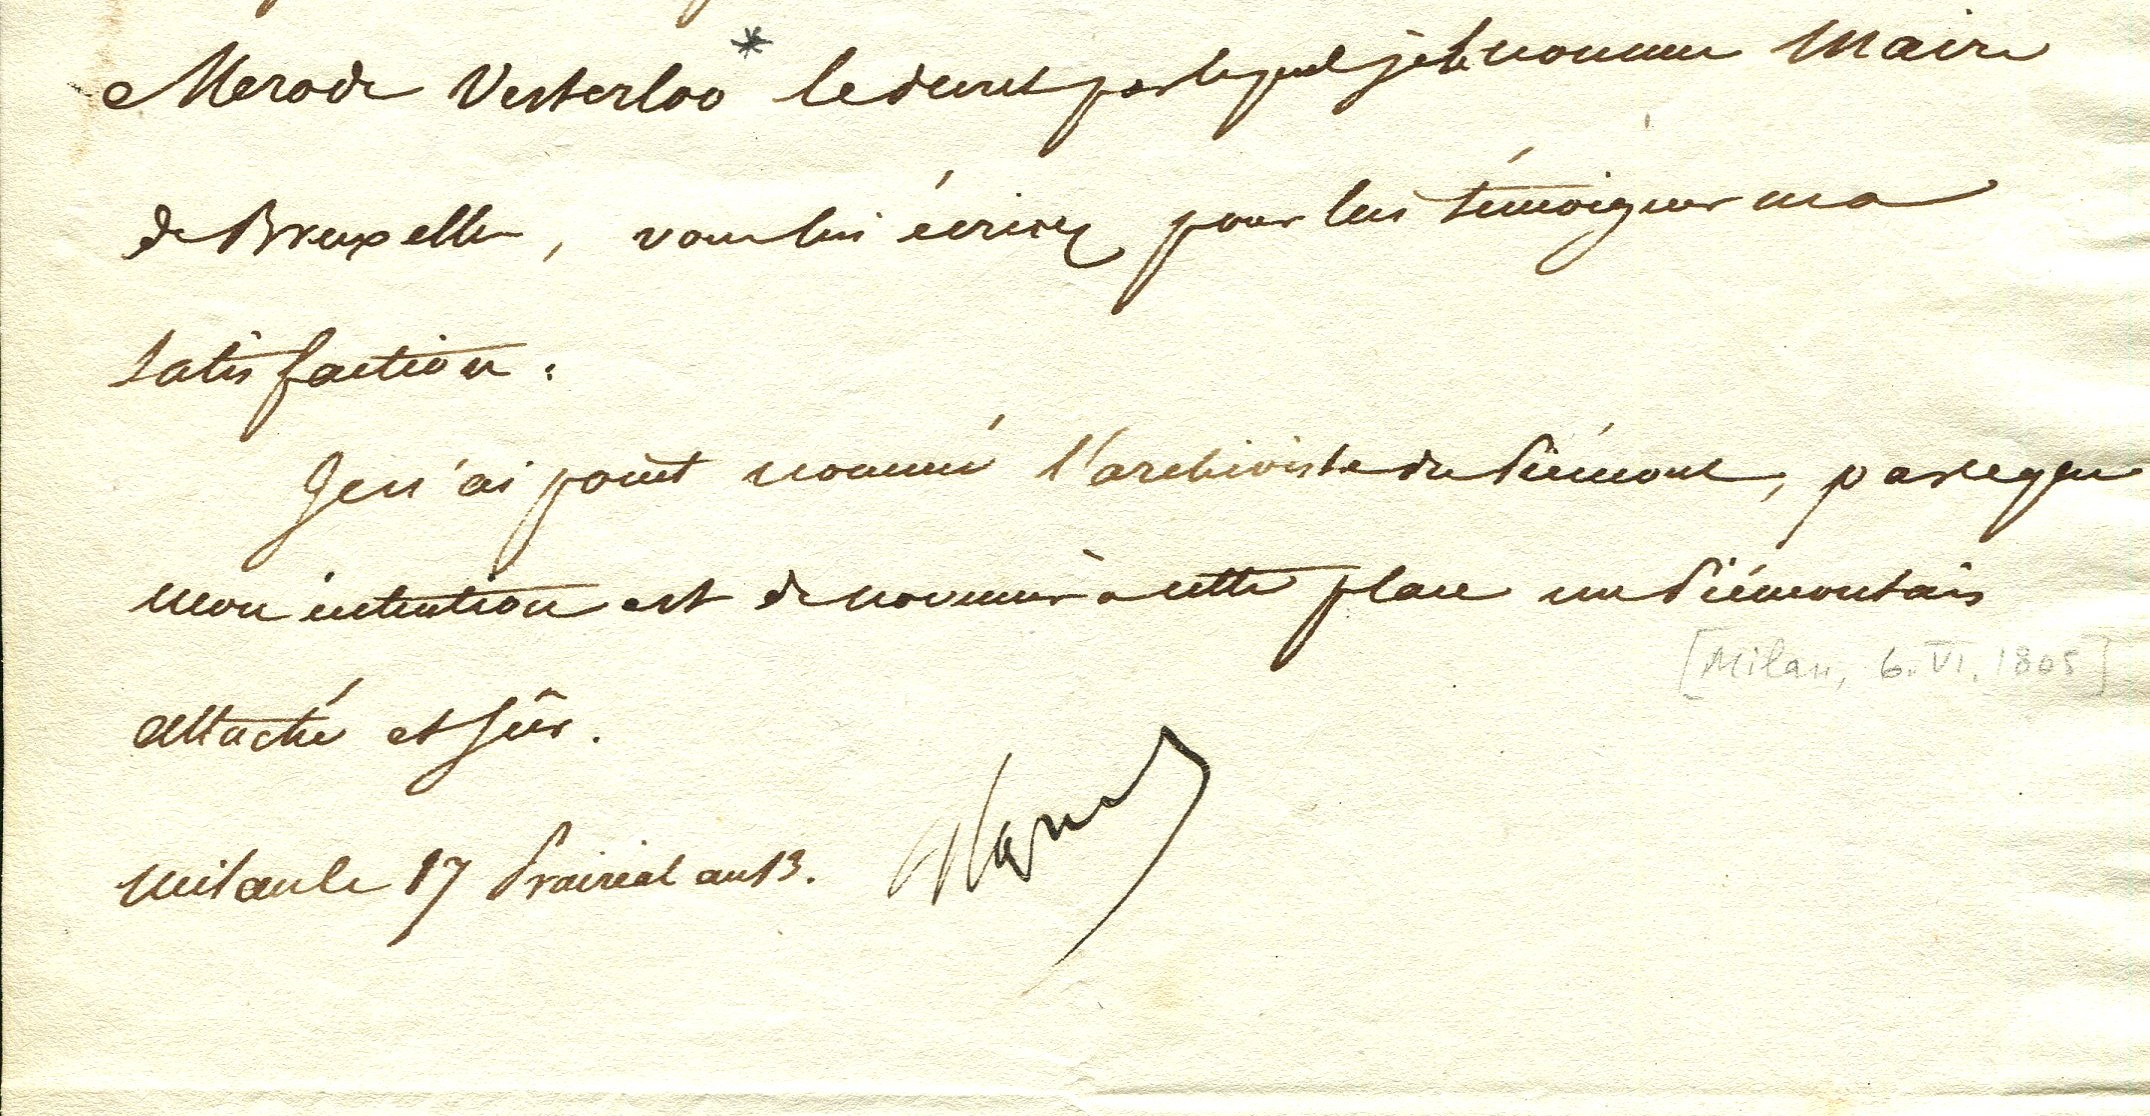 Merode Vesterloo* le decret par lequel je le nomme Maire
de Bruxelles, vous lui écrirez pour lui témoigner ma
satisfaction.
Je n'ai point nommé l'archiviste du Piémont, parceque
mon intention est de nommer à cette place un Piémontais
[Milan, 6. VI. 1805]
attaché et sûr.
Milan le 17 Prairial an 13.
Nap